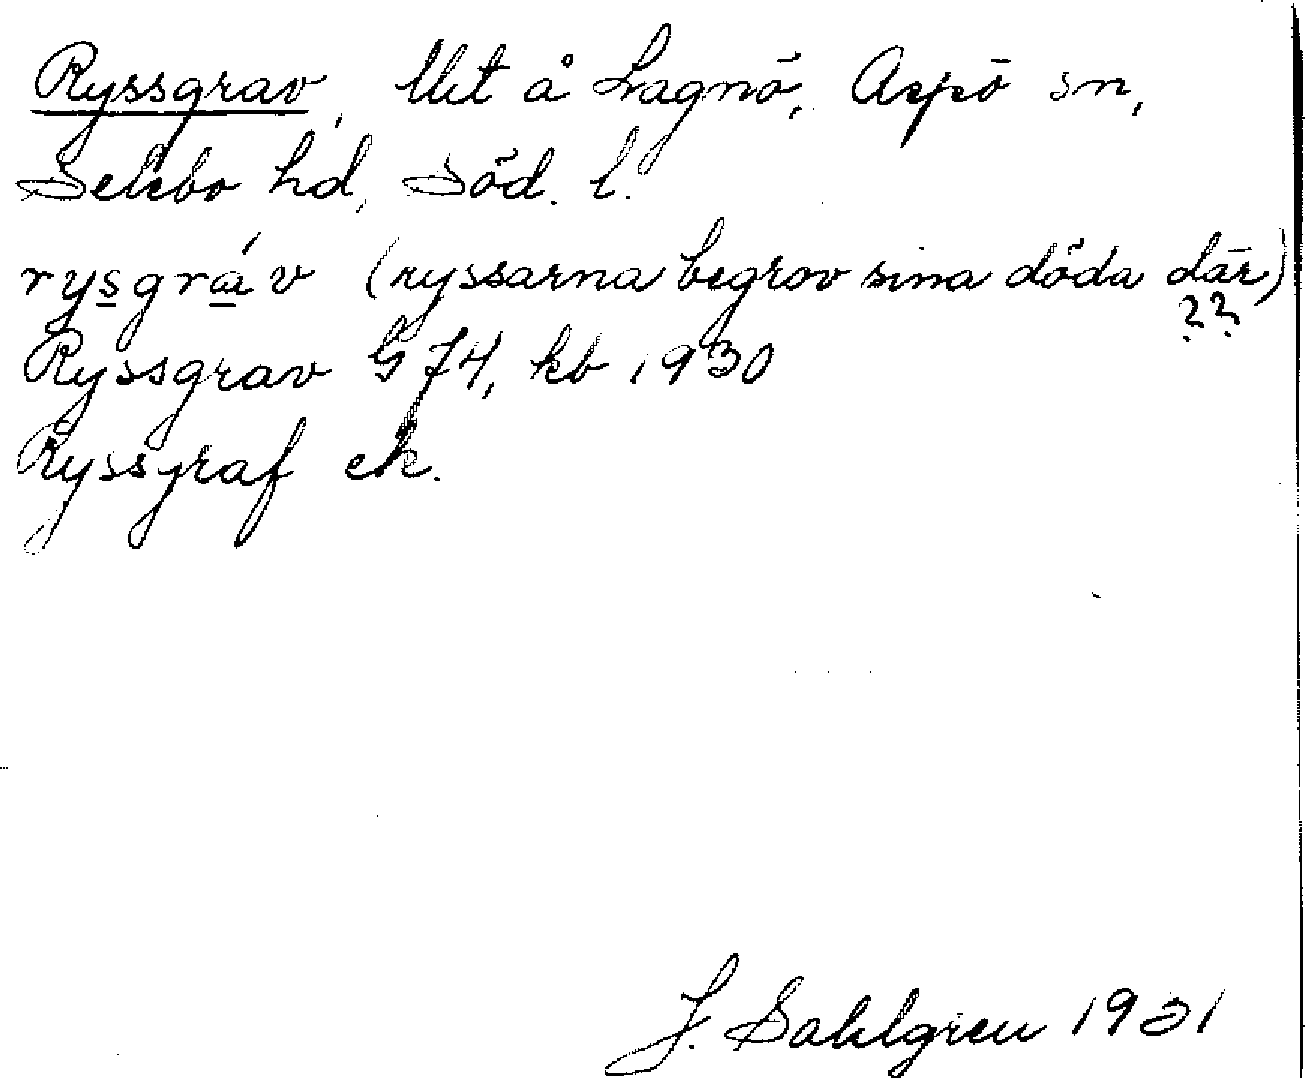 Ryssgrav, Utkt å Lagnö, Aspö sn,
Selebo hd, Söd. l.
rysgráv (ryssarna begrov sina döda där)
??
Ryssgrav G 74, kb 1930
Ryssgraf ek.
J. Sahlgren 1931